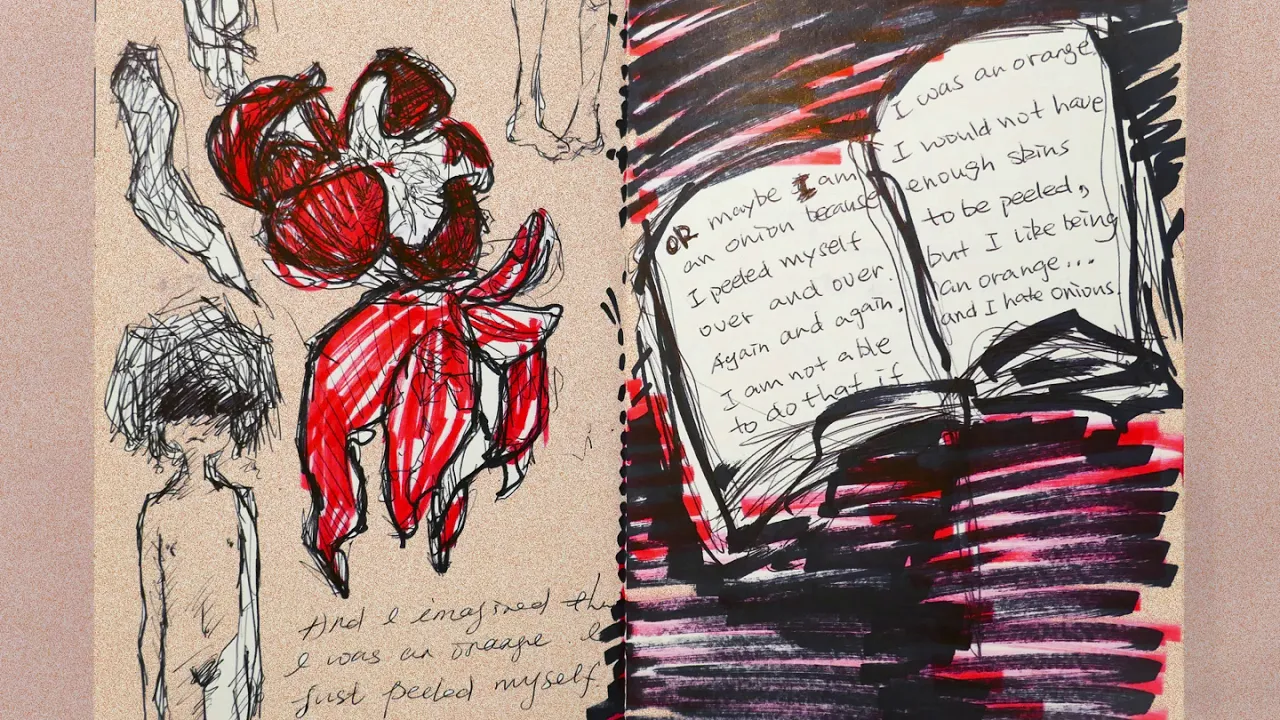 And I imagined
I was an orange I
just peeled myself.
OR maybe I am
an onion because
I peeled myself
over and over.
Again and again.
I am not able
to do that if
I was an orange.
I would not have
enough skins
to be peeled,
but I like being
an orange...
and I hate onions.